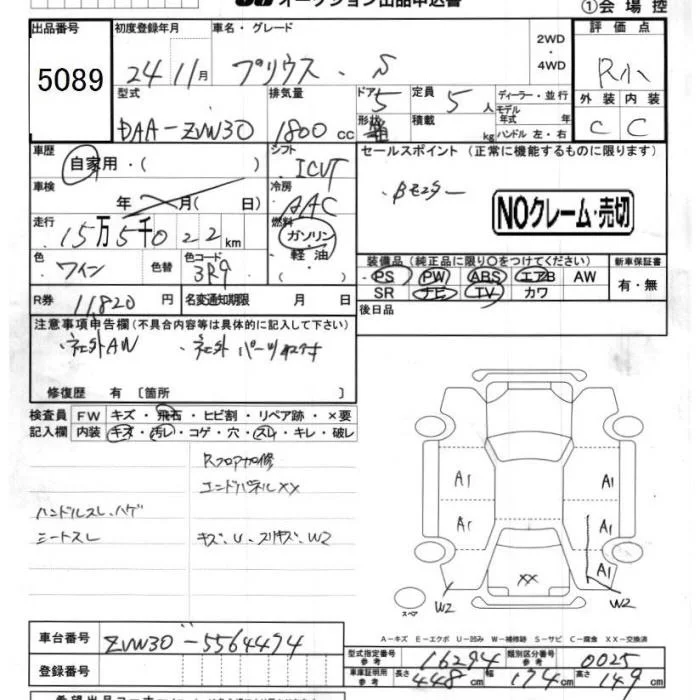 オークション出品申込書
①会場控
出品番号
5089
初度登録年月
24 11月
車名・グレード
プリウス . S
2WD
・
4WD
評価点
R小
外装 内装
C C
型式
DAA-ZVW30
排気量
1800 cc
ドア
5
形状
定員
5 人
積載
kg
ディーラー・並行
モデル
年式 年
ハンドル 左・右
車歴
自家用・( )
シフト
ICVT
セールスポイント (正常に機能するものに限ります)
NOクレーム・売切
車検
年 月( 日)
冷房
AAC
走行
15万5千022km
燃料
ガソリン
軽油
・( )
色
ワイン
色替
色コード
3R9
装備品 (純正品に限り○をつけてください)
新車保証書
PS PW ABS エアB AW
有・無
SR ナビ TV カワ
R券
11,820 円
名変通知期限 月 日
後日品
注意事項申告欄 (不具合内容等は具体的に記入して下さい)
・社外AW ・社外パーツ取付
修復歴 有 [箇所 ]
検査員
記入欄
FW キズ・飛石・ヒビ割・リペア跡・×要
内装 キズ・汚レ・コゲ・穴・スレ・キレ・破レ
Rフロア加修
エンドパネルXX
ハンドルスレ、ハゲ
シートスレ
キズ、U、スリキズ、W2
A1 A1
A1 A1
A1
XX
W2 W2
スペア
A-キズ E-エクボ U-凹み W-補修跡 S-サビ C-腐食 XX-交換済
車台番号
ZVW30-5564474
登録番号
型式指定番号
参考
16294
類別区分番号
参考
0025
車庫証明用
参考
長さ 448cm 幅 174cm 高さ 149cm